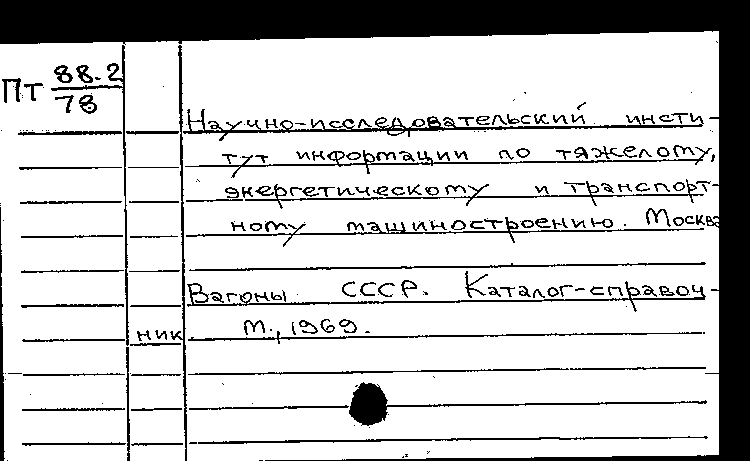 Пт 88.2
78
Научно-исследовательский инсти-
тут информации по тяжелому,
энергетическому и транспорт-
ному машиностроению. Москва
Вагоны СССР. Каталог-справоч-
ник М., 1969.